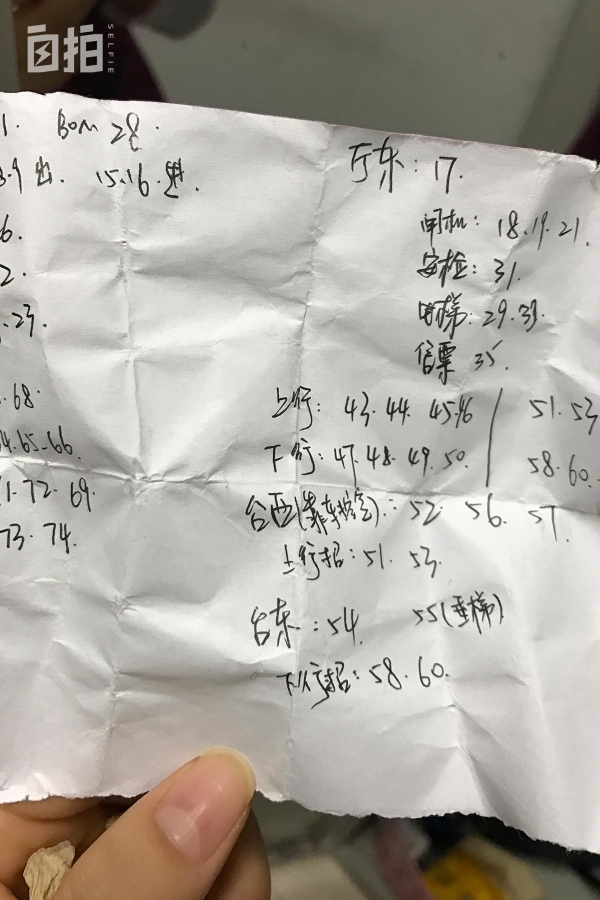 自拍
SELFIE
1. BOM 28.
出. 15.16.进.
6.
2.
23.
68.
4.65.66.
1.72.69.
73.74.
厅东: 17.
闸机: 18.19.21.
安检: 31.
电梯: 29.39.
售票 35.
上行: 43.44.45.46 / 51.53
下行: 47.48.49.50. / 58.60.
台西(靠车控室).: 52. 56. 57.
上行招: 51. 53.
台东: 54. 55(垂梯)
下行招: 58.60.